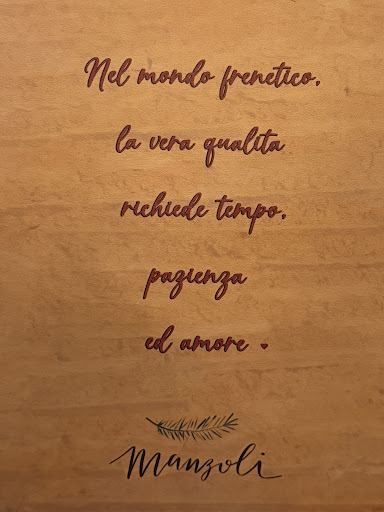 Nel mondo frenetico,
la vera qualita
richiede tempo,
pazienza
ed amore .
Manzoli